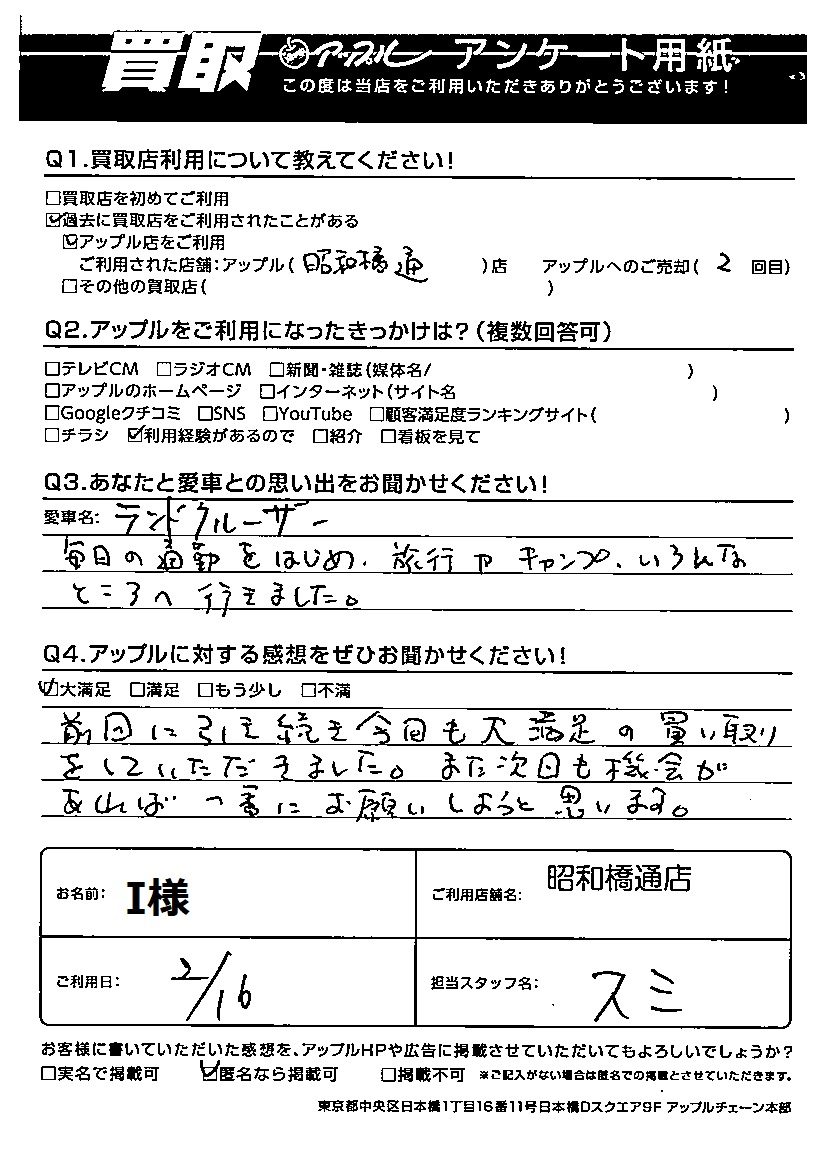 買取 アップル アンケート用紙
この度は当店をご利用いただきありがとうございます!
Q1.買取店利用について教えてください!
□買取店を初めてご利用
☑過去に買取店をご利用されたことがある
☑アップル店をご利用
ご利用された店舗:アップル( 昭和橋通 )店 アップルへのご売却( 2 回目)
□その他の買取店( )
Q2.アップルをご利用になったきっかけは?(複数回答可)
□テレビCM □ラジオCM □新聞・雑誌(媒体名/ )
□アップルのホームページ □インターネット(サイト名 )
□Googleクチコミ □SNS □YouTube □顧客満足度ランキングサイト( )
□チラシ ☑利用経験があるので □紹介 □看板を見て
Q3.あなたと愛車との思い出をお聞かせください!
愛車名: ランドクルーザー
毎日の通勤をはじめ、旅行やキャンプ、いろんな
ところへ行きました。
Q4.アップルに対する感想をぜひお聞かせください!
☑大満足 □満足 □もう少し □不満
前回に引き続き今回も大満足の買い取り
をしていただきました。また次回も機会が
あれば一番にお願いしようと思います。
お名前: I様 ご利用店舗名: 昭和橋通店
ご利用日: 2/16 担当スタッフ名: スミ
お客様に書いていただいた感想を、アップルHPや広告に掲載させていただいてもよろしいでしょうか?
□実名で掲載可 ☑匿名なら掲載可 □掲載不可 ※ご記入がない場合は匿名での掲載とさせていただきます。
東京都中央区日本橋1丁目16番11号日本橋Dスクエア9F アップルチェーン本部